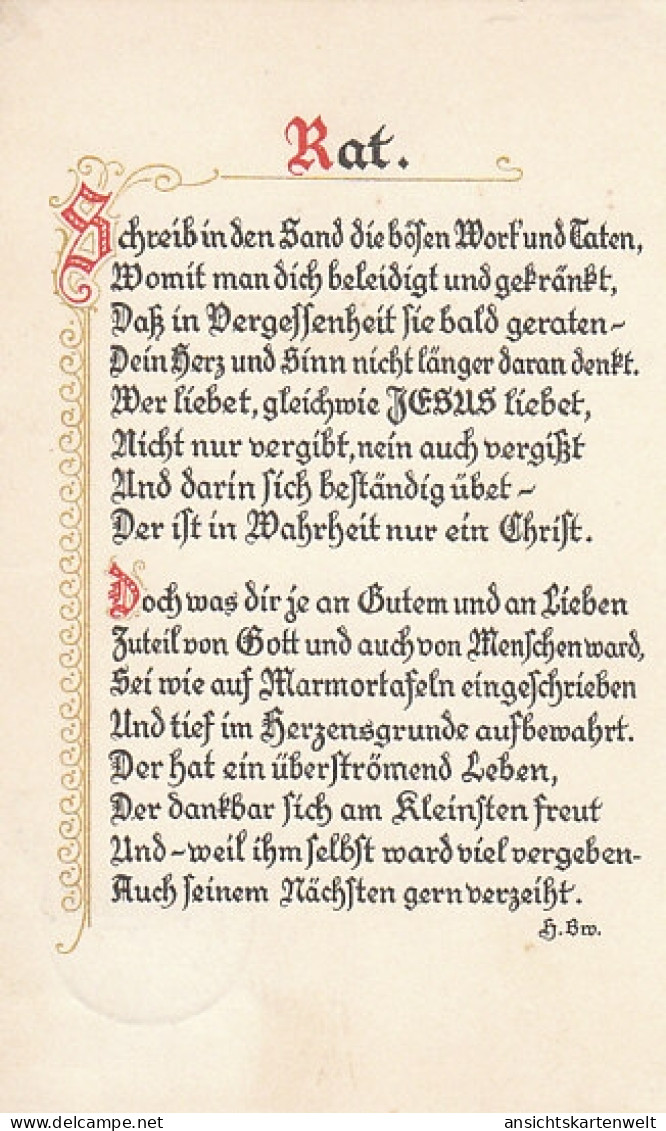 Rat.
Schreib in den Sand die bösen Wort' und Taten,
Womit man dich beleidigt und gekränkt,
Daß in Vergessenheit sie bald geraten ~
Dein Herz und Sinn nicht länger daran denkt.
Wer liebet, gleichwie JESUS liebet,
Nicht nur vergibt, nein auch vergißt
Und darin sich beständig übet ~
Der ist in Wahrheit nur ein Christ.
Doch was dir je an Gutem und an Lieben
Zuteil von Gott und auch von Menschen ward,
Sei wie auf Marmortafeln eingeschrieben
Und tief im Herzensgrunde aufbewahrt.
Der hat ein überströmend Leben,
Der dankbar sich am Kleinsten freut
Und ~ weil ihm selbst ward viel vergeben -
Auch seinem Nächsten gern verzeiht.
H. Bw.
delcampe.net
ansichtskartenwelt